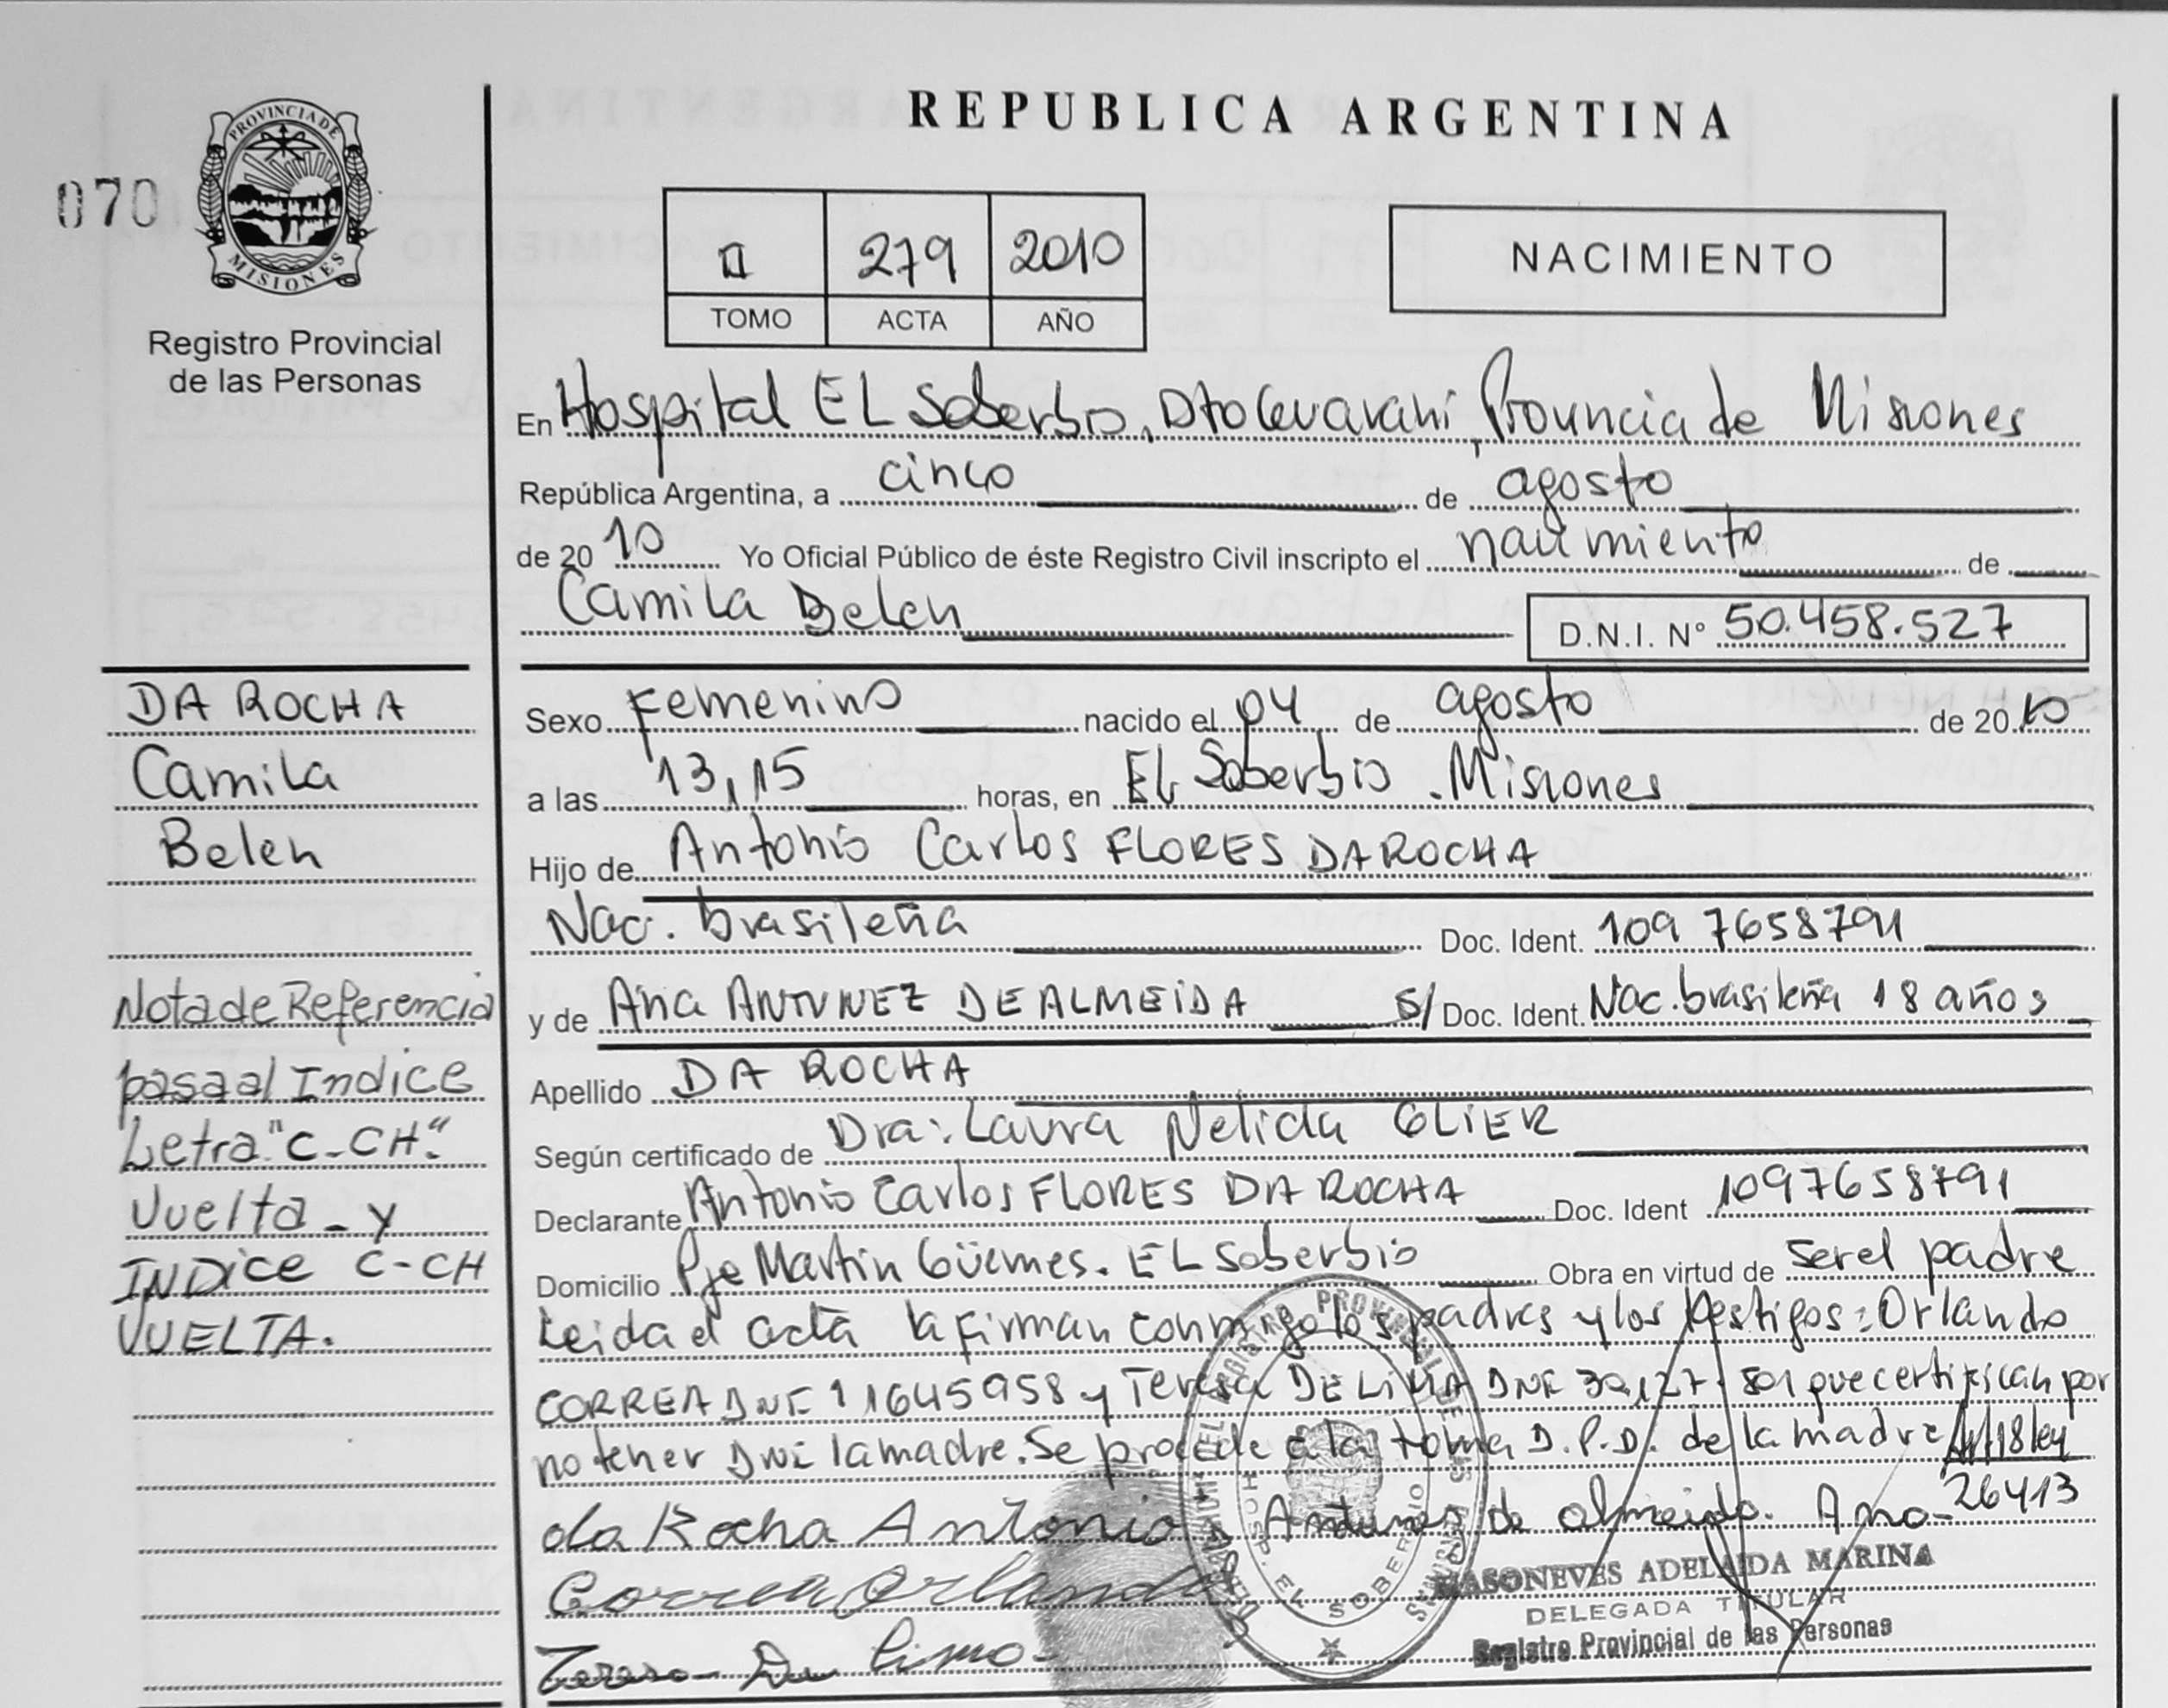 REPUBLICA ARGENTINA
070
PROVINCIA DE
MISIONES
Registro Provincial
de las Personas
II 279 2010
TOMO ACTA AÑO
NACIMIENTO
En Hospital EL Soberbio, Dto Guarani, Provincia de Misiones
República Argentina, a cinco de agosto
de 2010 Yo Oficial Público de éste Registro Civil inscripto el nacimiento de
Camila Belen D.N.I. N° 50.458.527
DA ROCHA
Camila
Belen
Nota de Referencia
pasa al Indice
Letra "C-CH"
Vuelta - y
INDice C-CH
VUELTA.
Sexo Femenino nacido el 04 de agosto de 2010
a las 13,15 horas, en EL Soberbio . Misiones
Hijo de Antonio Carlos FLORES DA ROCHA
Nac. brasileña Doc. Ident. 109 7658791
y de Ana ANTUNEZ DE ALMEIDA S/ Doc. Ident. Nac. brasileña 18 años
Apellido DA ROCHA
Según certificado de Dra: Laura Nelida GLIER
Declarante Antonio Carlos FLORES DA ROCHA Doc. Ident 1097658791
Domicilio Pje Martin Güemes. EL Soberbio Obra en virtud de ser el padre
Leida el acta la firman conmigo los padres y los testigos: Orlando
CORREA DNI 11645958 y Teresa DE LIMA DNI que certifican por
no tener DNI la madre. Se procede a la toma D.P.D. de la madre Art 18 ley
26413
da Rocha Antonio Antunes de Almeida. Ana
Correa Orlando
Teresa De Lima
HOSP. EL SOBERBIO
MASONEVES ADELAIDA MARINA
DELEGADA TITULAR
Registro Provincial de las Personas